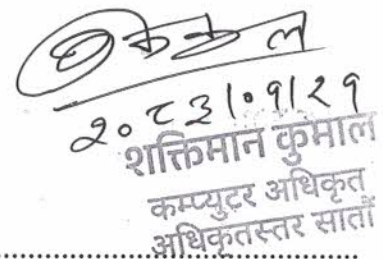 २०८३।०१२१
शक्तिमान कुमाल
कम्प्युटर अधिकृत
अधिकृतस्तर सातौं